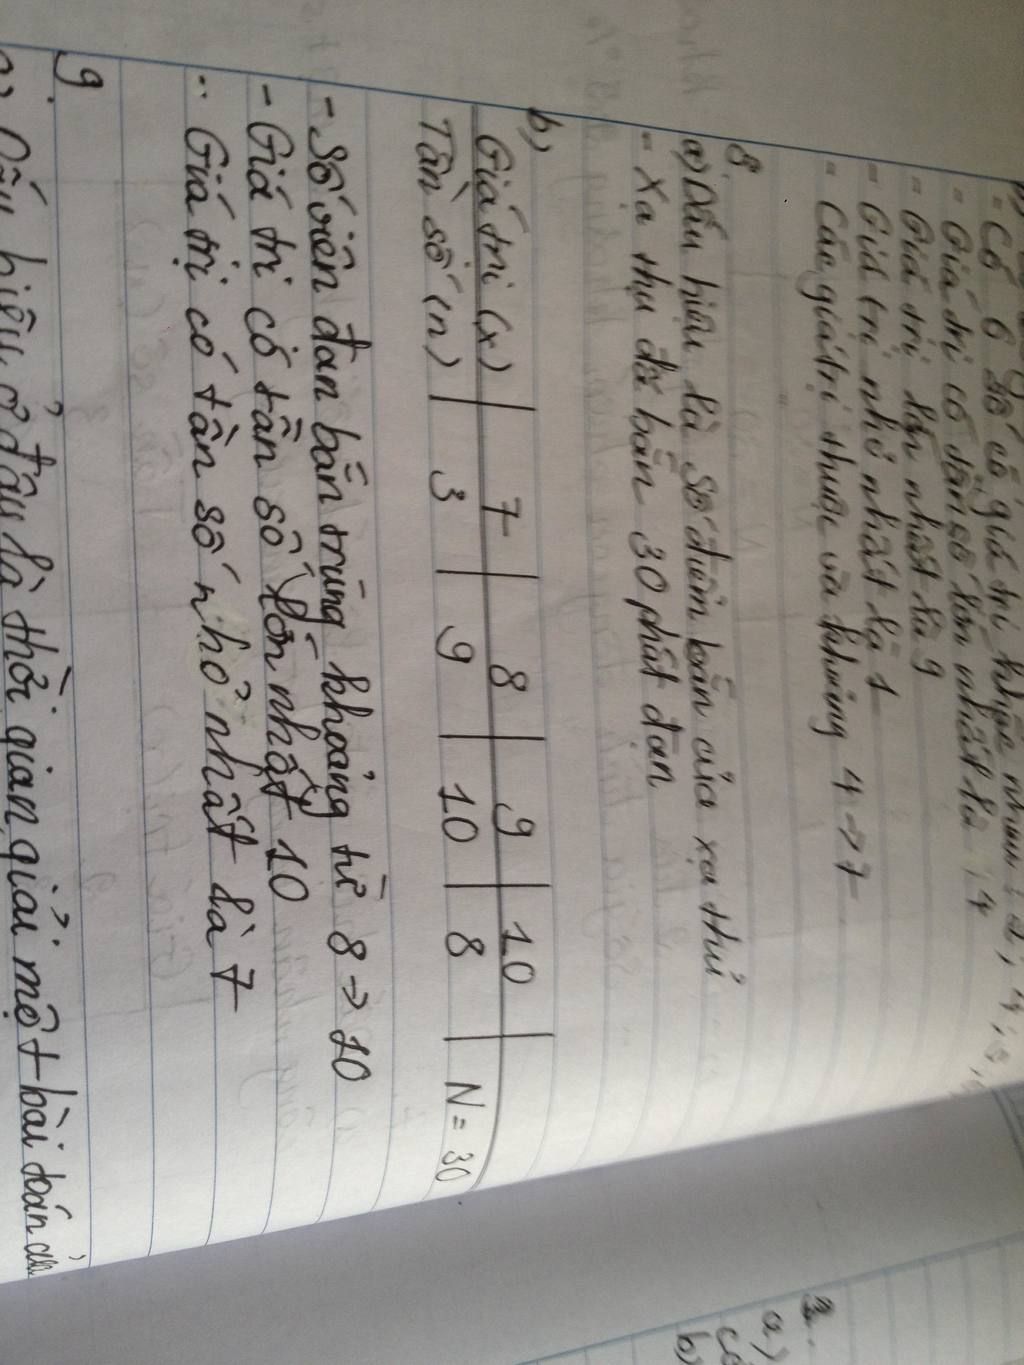 - Có 6 số có giá trị khác nhau:
- Giá trị có tần số lớn nhất là 4
- Giá trị lớn nhất là 9
- Giá trị nhỏ nhất là 1
- Các giá trị thuộc và khoảng 4 → 7
8.
a) Dấu hiệu là số điểm bắn của xạ thủ
- Xạ thụ đã bắn 30 phát đạn
b)
Giá trị (x) | 7 | 8 | 9 | 10 |
Tần số (n) | 3 | 9 | 10 | 8 | N = 30
- Số viên đạn bắn trúng khoảng từ 8 → 10
- Giá trị có tần số lớn nhất 10
- Giá trị có tần số nhỏ nhất là 7
9.
a) Dấu hiệu ở đây là thời gian giải một bài toán
2.
a)
b)